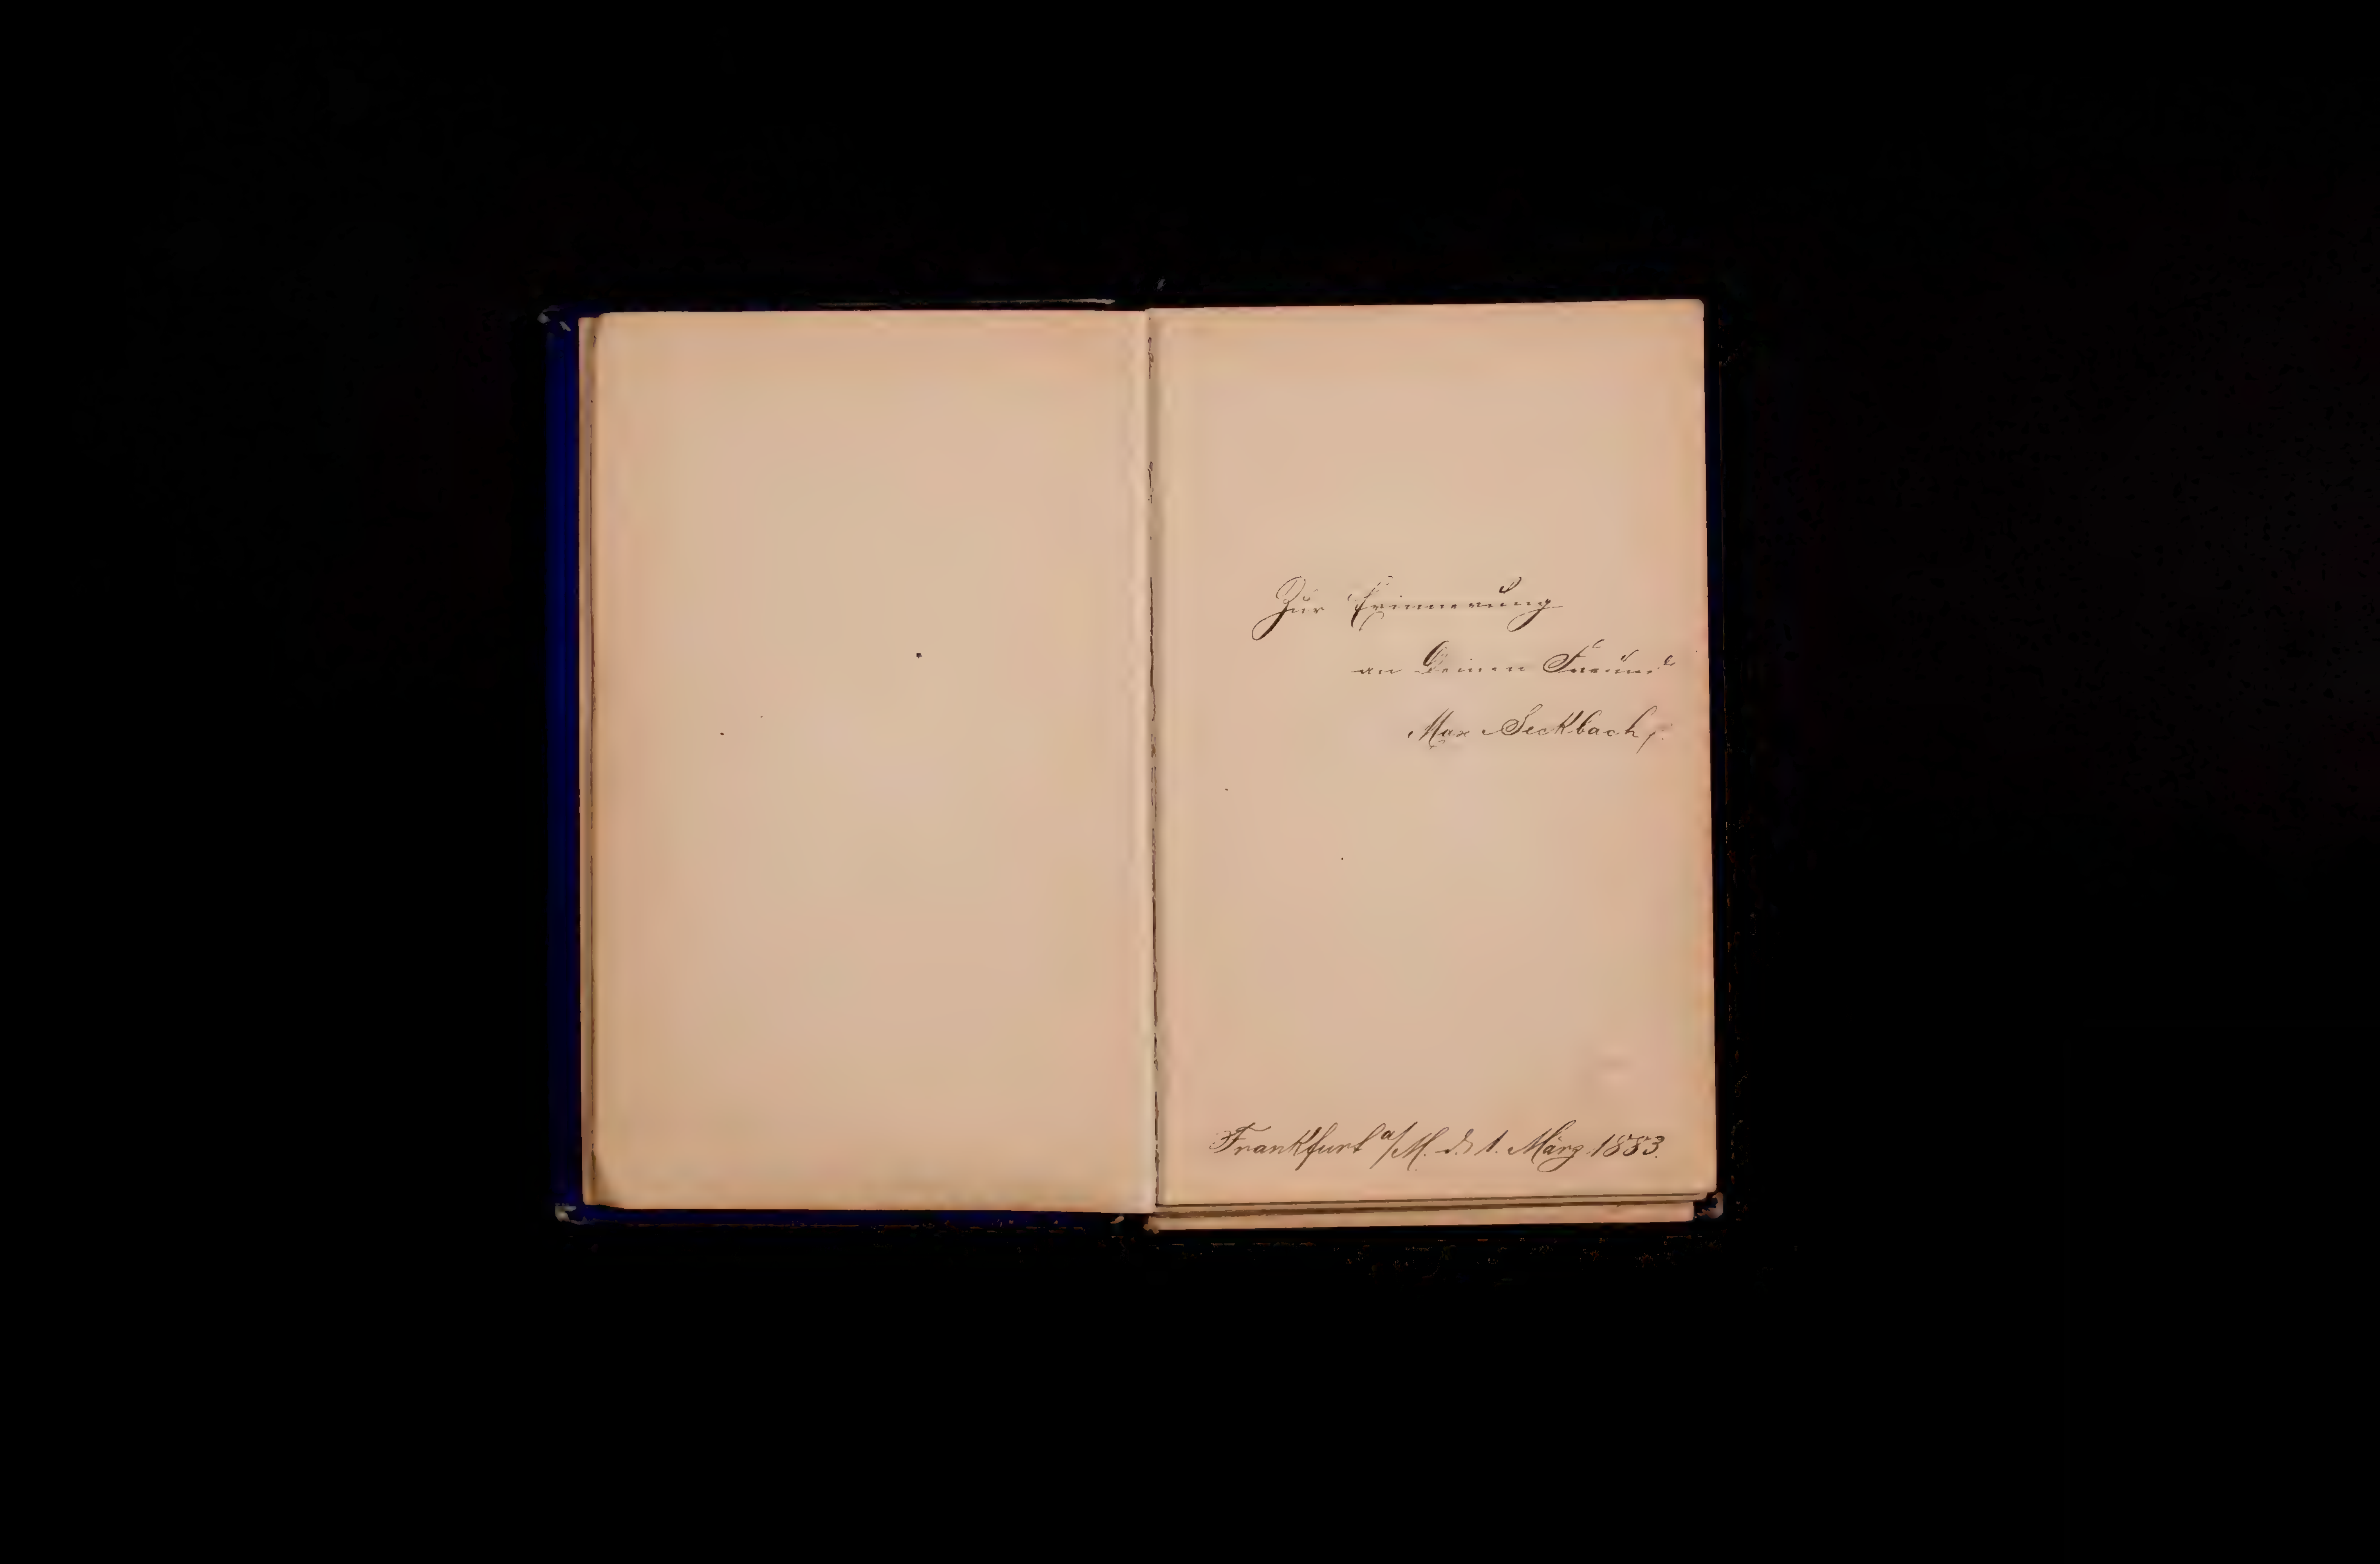 Zur Erinnerung
an Deinen Freund
Max Seckbach,
Frankfurt a/M. d. 1. März 1883.